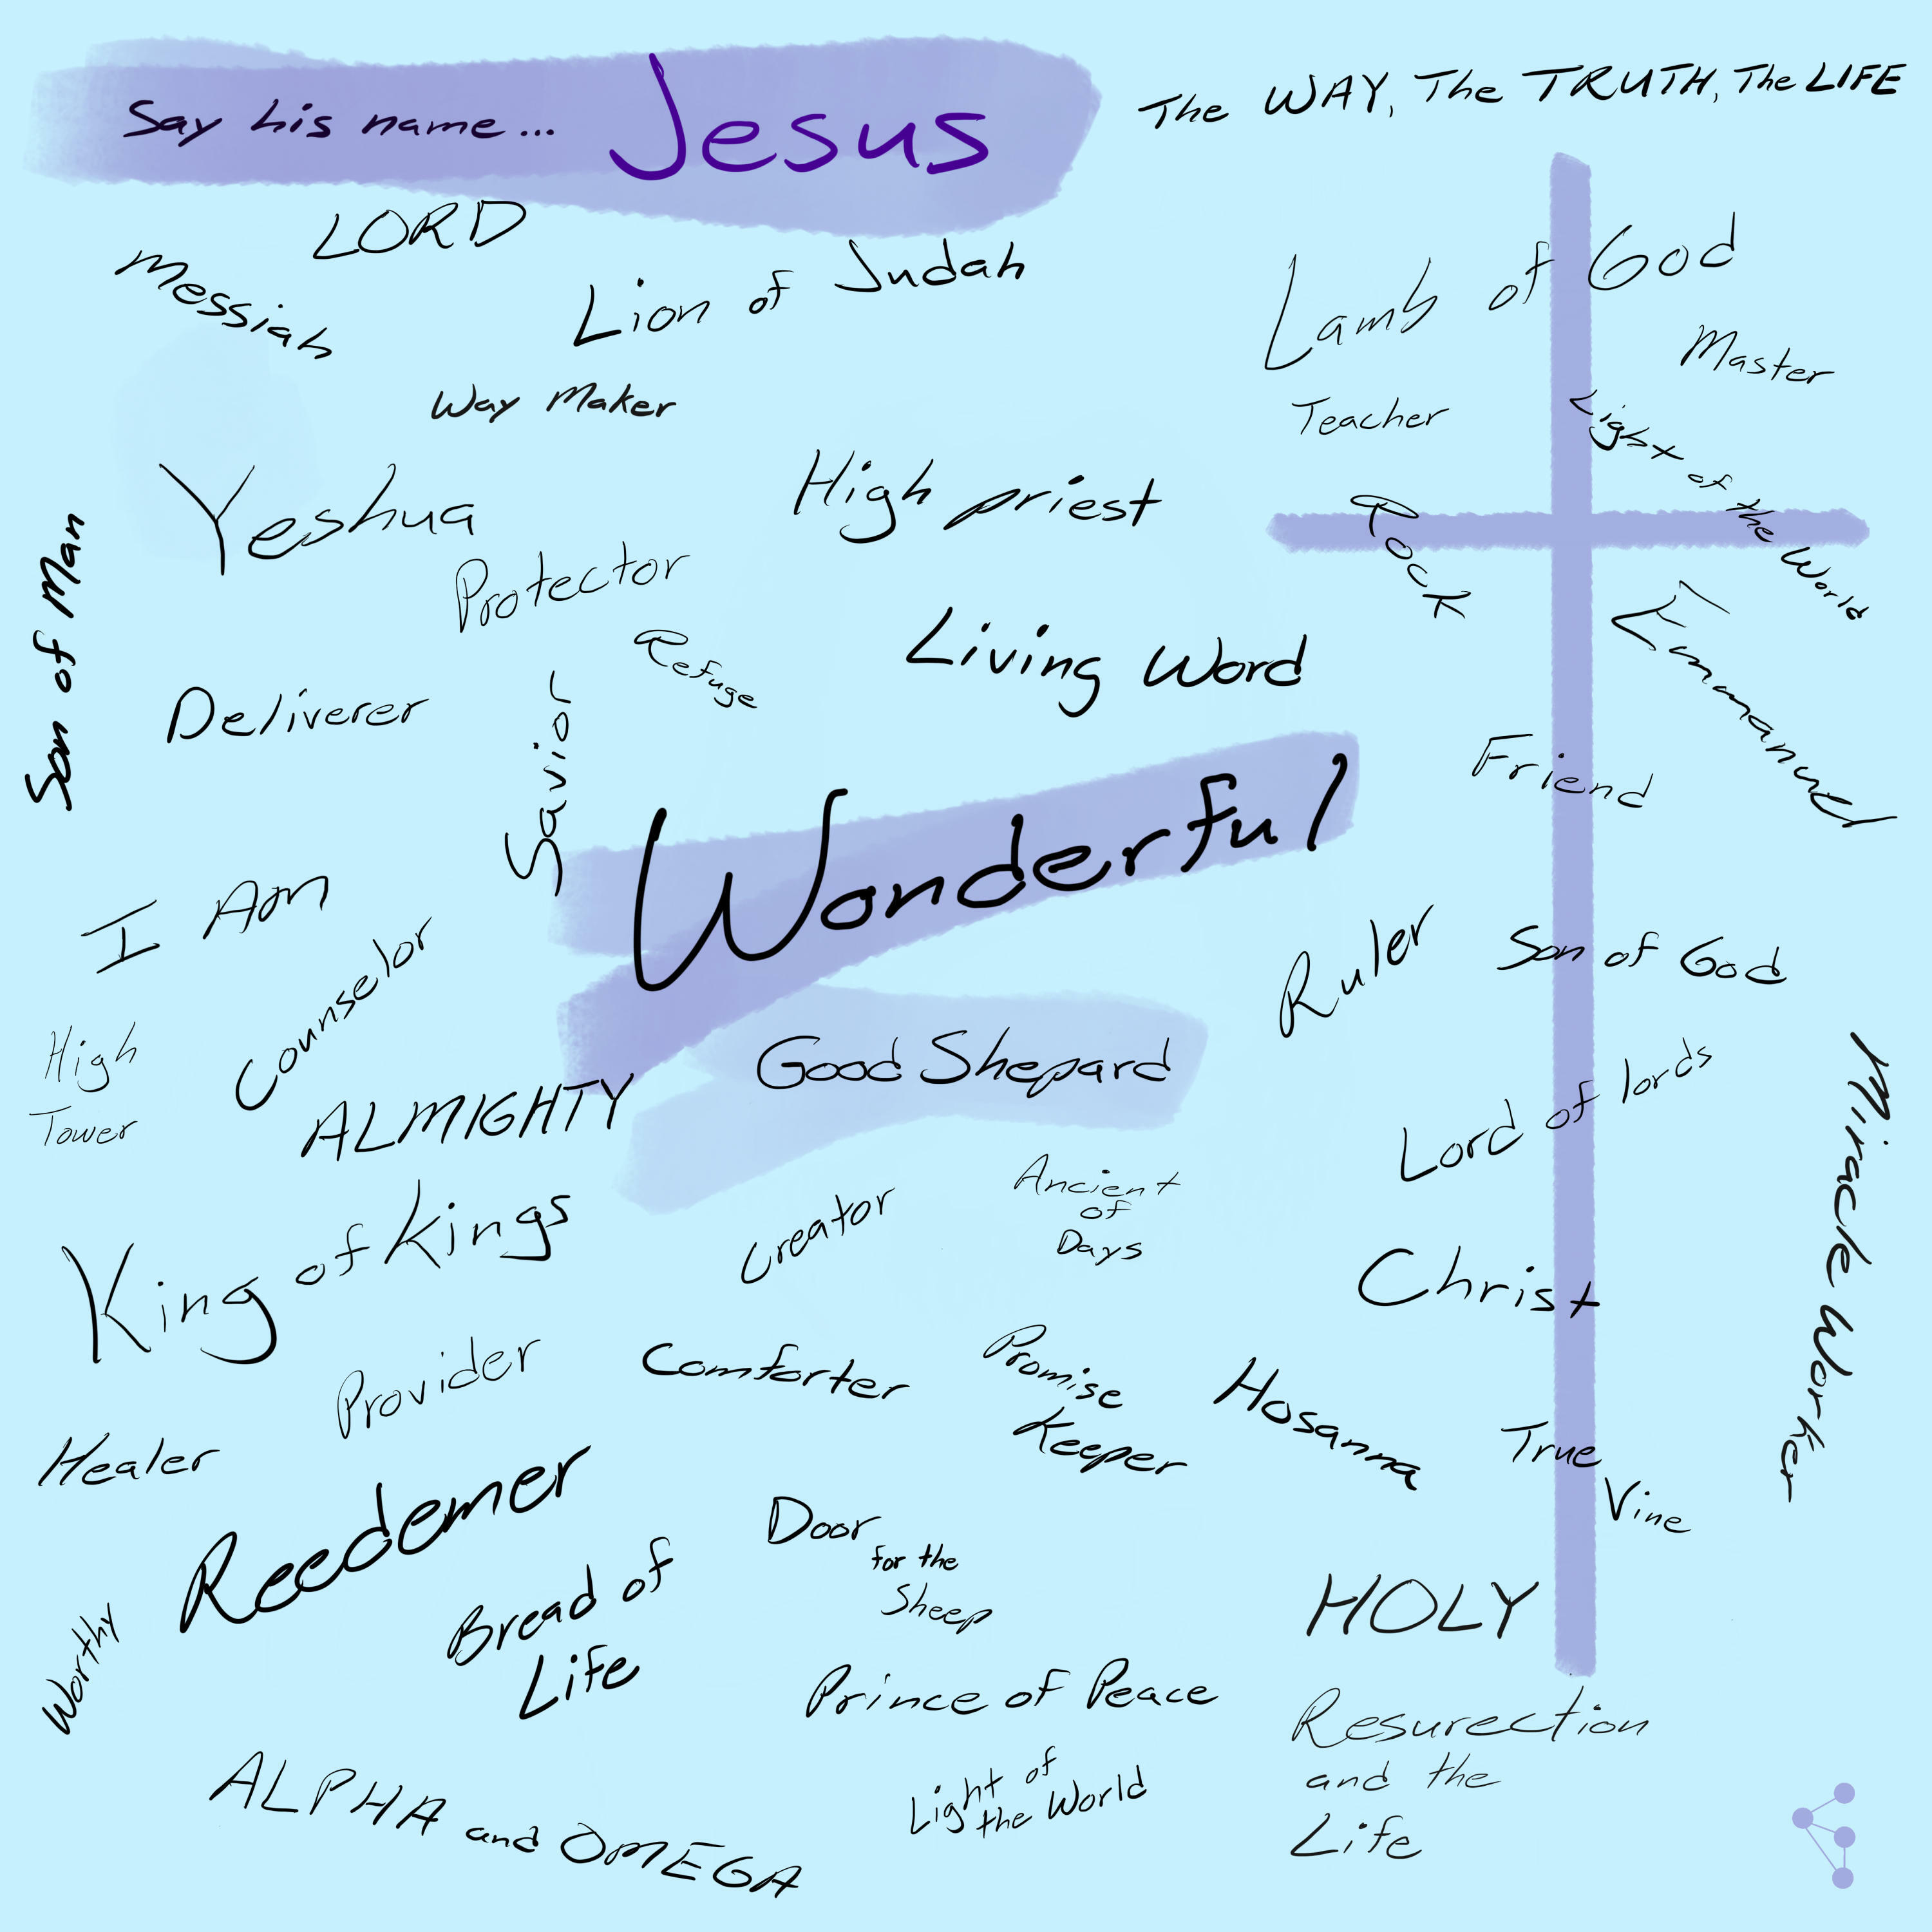 Say his name... Jesus
The WAY, The TRUTH, The LIFE
LORD
Messiah
Lion of Judah
Lamb of God
Master
Way Maker
Teacher
Light of the World
Yeshua
High priest
Rock
Son of Man
Protector
Refuge
Living Word
Emmanuel
Deliverer
Savior
Friend
Wonderful
I Am
Counselor
Ruler
Son of God
High
Tower
Good Shepard
ALMIGHTY
Lord of lords
Miracle Worker
King of Kings
Creator
Ancient
of
Days
Christ
Provider
Comforter
Promise
Keeper
Hosanna
True
Vine
Healer
Reedemer
Door
for the
Sheep
Bread of
Life
HOLY
Worthy
Prince of Peace
Resurection
and the
Life
ALPHA and OMEGA
Light of
the World